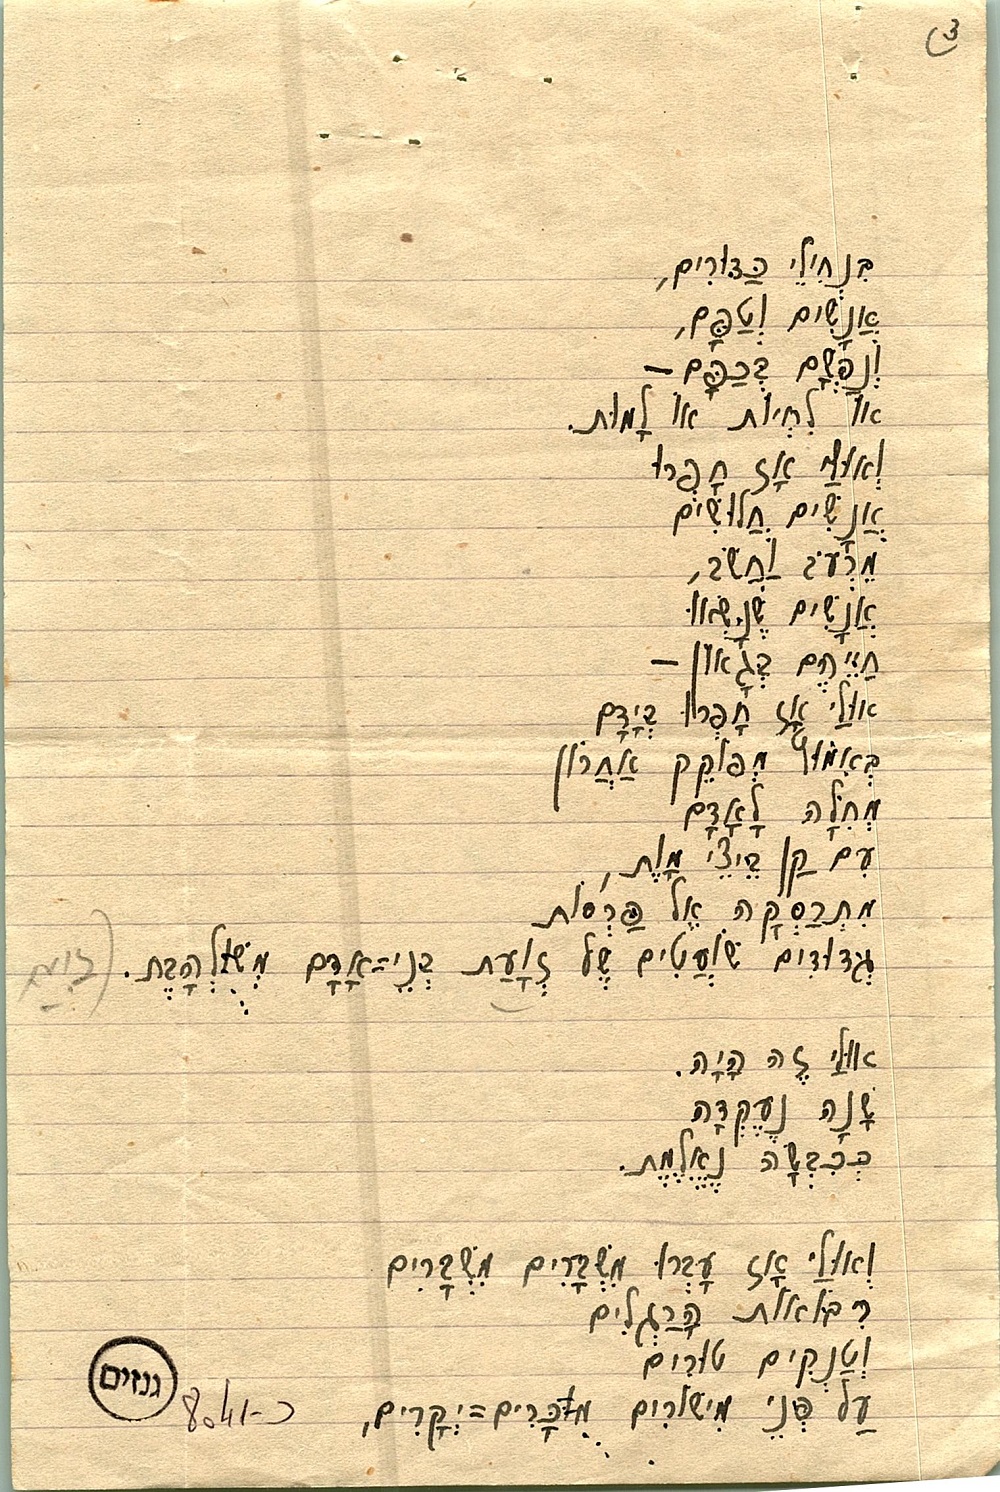 3)
בִּנְחִילֵי הַצּוּרִים,
אֲנָשִׁים וְטַפָּם,
וְנַפְשָׁם בְּכַפָּם –
אוֹ לִחְיוֹת אוֹ לָמוּת.
וְאוּלַי אָז חָפְרוּ
אֲנָשִׁים חֲלוּשִׁים
מֵרָעָב וַחֲשָׁשׁ,
אֲנָשִׁים שֶׁנָּשְׂאוּ
חַיֵּיהֶם בְּגָאוֹן –
אוּלַי אָז חָפְרוּ בְּיָדָם
בְּאִמּוּץ מְפוֹקֵק אַחֲרוֹן
מְחִלָּה לָאָדָם
עִם קַן בֵּיצֵי מָוֶת,
מִתְרַסְּקָה אֶל פַּרְסוֹת
גְּדוּדִים שׁוֹעֲטִים שֶׁל זְוָעַת בְּנֵי=אָדָם מְשׁוּלְהֶבֶת.
אוּלַי זֶה הָיָה.
שָׁנָה נֶעֶקְדָה
כְּכִבְשָׂה נֶאֱלֶמֶת.
וְאוּלַי אָז עָבְרוּ מִשְׁבָּרִים מִשְׁבָּרִים
רִבּוֹאוֹת הָרַגְלִים
וְטַנְקִים טוּרִים
עַל פְּנֵי מִישׁוֹרִים מוּכָּרִים=יְקָרִים,
גנזים
כ-8041